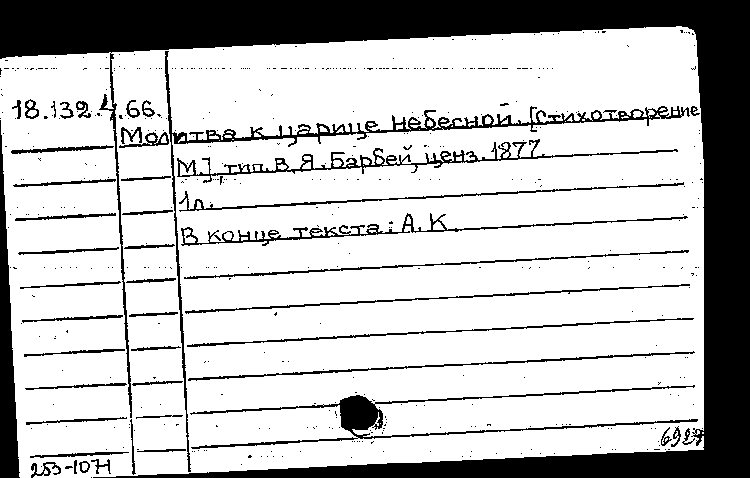 18.132.4.66.
Молитва к царице небесной. [Стихотворение
М.], тип. В. Я. Барбей, ценз. 1877.
1л.
В конце текста: А. К.
6927
253-1071